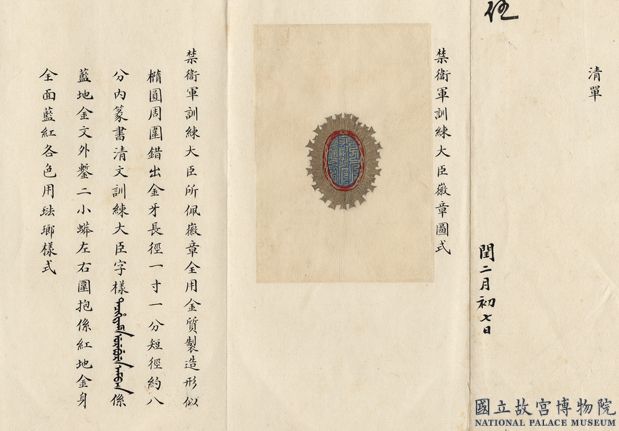 伍
清單
閏二月初七日
禁衞軍訓練大臣徽章圖式
禁衞軍訓練大臣所佩徽章全用金質製造形似
橢圓周圍錯出金牙長徑一寸一分短徑約八
分內篆書清文訓練大臣字樣係
藍地金文外鏨二小蟒左右圍抱係紅地金身
全面藍紅各色用琺瑯樣式
國立故宮博物院
NATIONAL PALACE MUSEUM